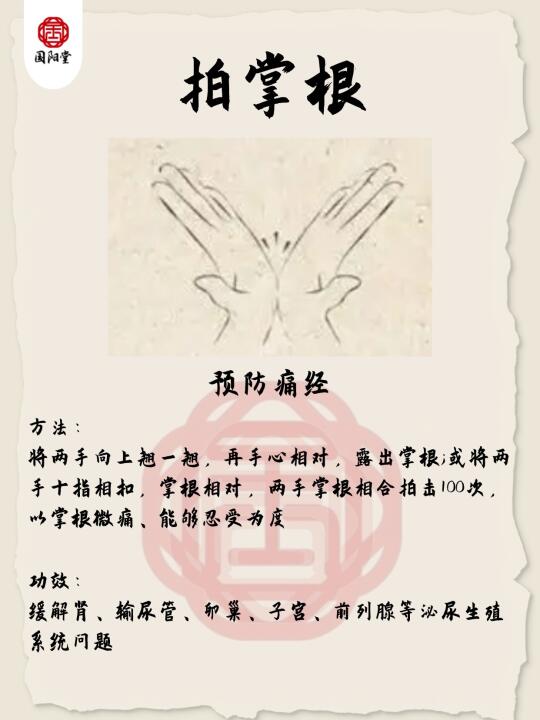 国阳堂
拍掌根
预防痛经
方法：
将两手向上翘一翘，再手心相对，露出掌根;或将两
手十指相扣，掌根相对，两手掌根相合拍击100次，
以掌根微痛、能够忍受为度
功效：
缓解肾、输尿管、卵巢、子宫、前列腺等泌尿生殖
系统问题